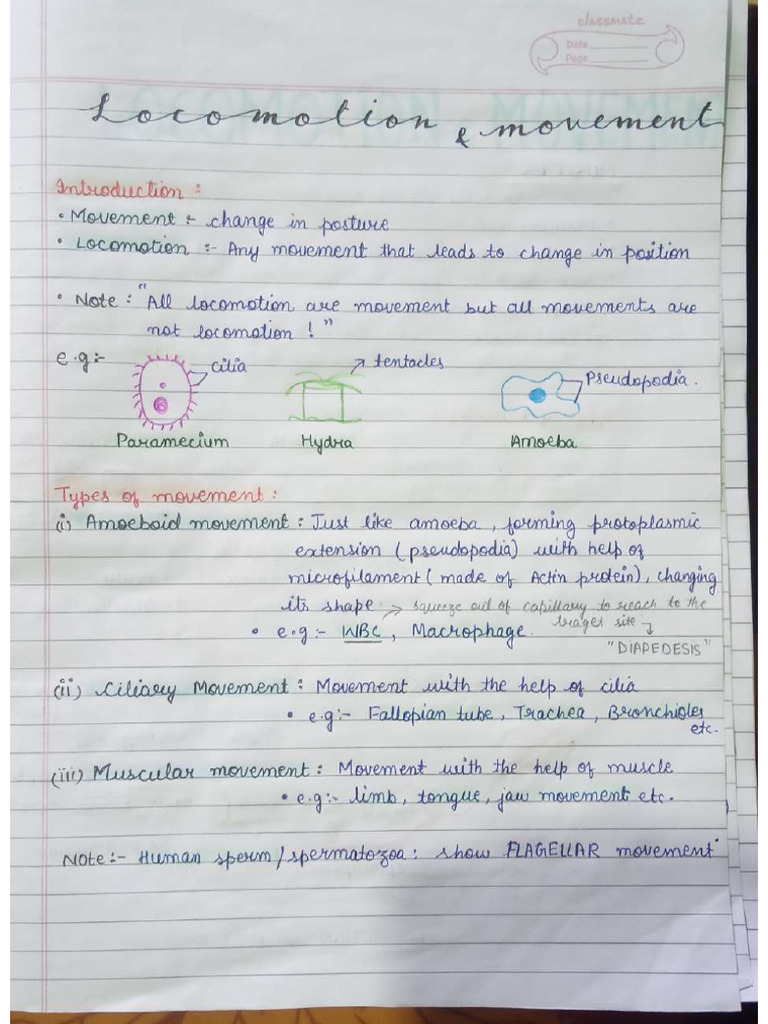 classmate
Date
Page
Locomotion & movement
Introduction :
• Movement :- change in posture
• Locomotion :- Any movement that leads to change in position
• Note : "All locomotion are movement but all movements are
not locomotion ! "
e.g :-
cilia
tentacles
Pseudopodia.
Paramecium
Hydra
Amoeba
Types of movement :
(i) Amoeboid movement : Just like amoeba, forming protoplasmic
extension ( pseudopodia) with help of
microfilament ( made of Actin protein), changing
its shape → squeeze out of capillary to reach to the
traget site
• e.g :- WBC, Macrophage.
"DIAPEDESIS"
(ii) Ciliary Movement : Movement with the help of cilia
• e.g :- Fallopian tube, Trachea, Bronchioles
etc.
(iii) Muscular movement : Movement with the help of muscle
• e.g :- limb, tongue, jaw movement etc.
NOte :- Human sperm/spermatozoa : show FLAGELLAR movement